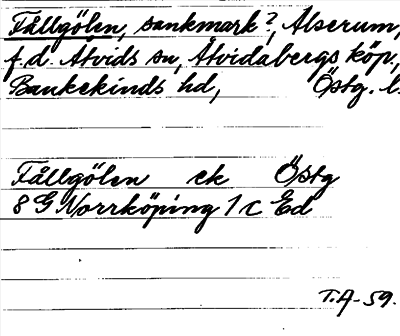 Fållgölen, sankmark?, Alserum,
f.d. Åtvids sn, Åtvidabergs köp,
Bankekinds hd, Östg. l.
Fållgölen ek Östg
8 G Norrköping 1 c Ed
T.A-59.